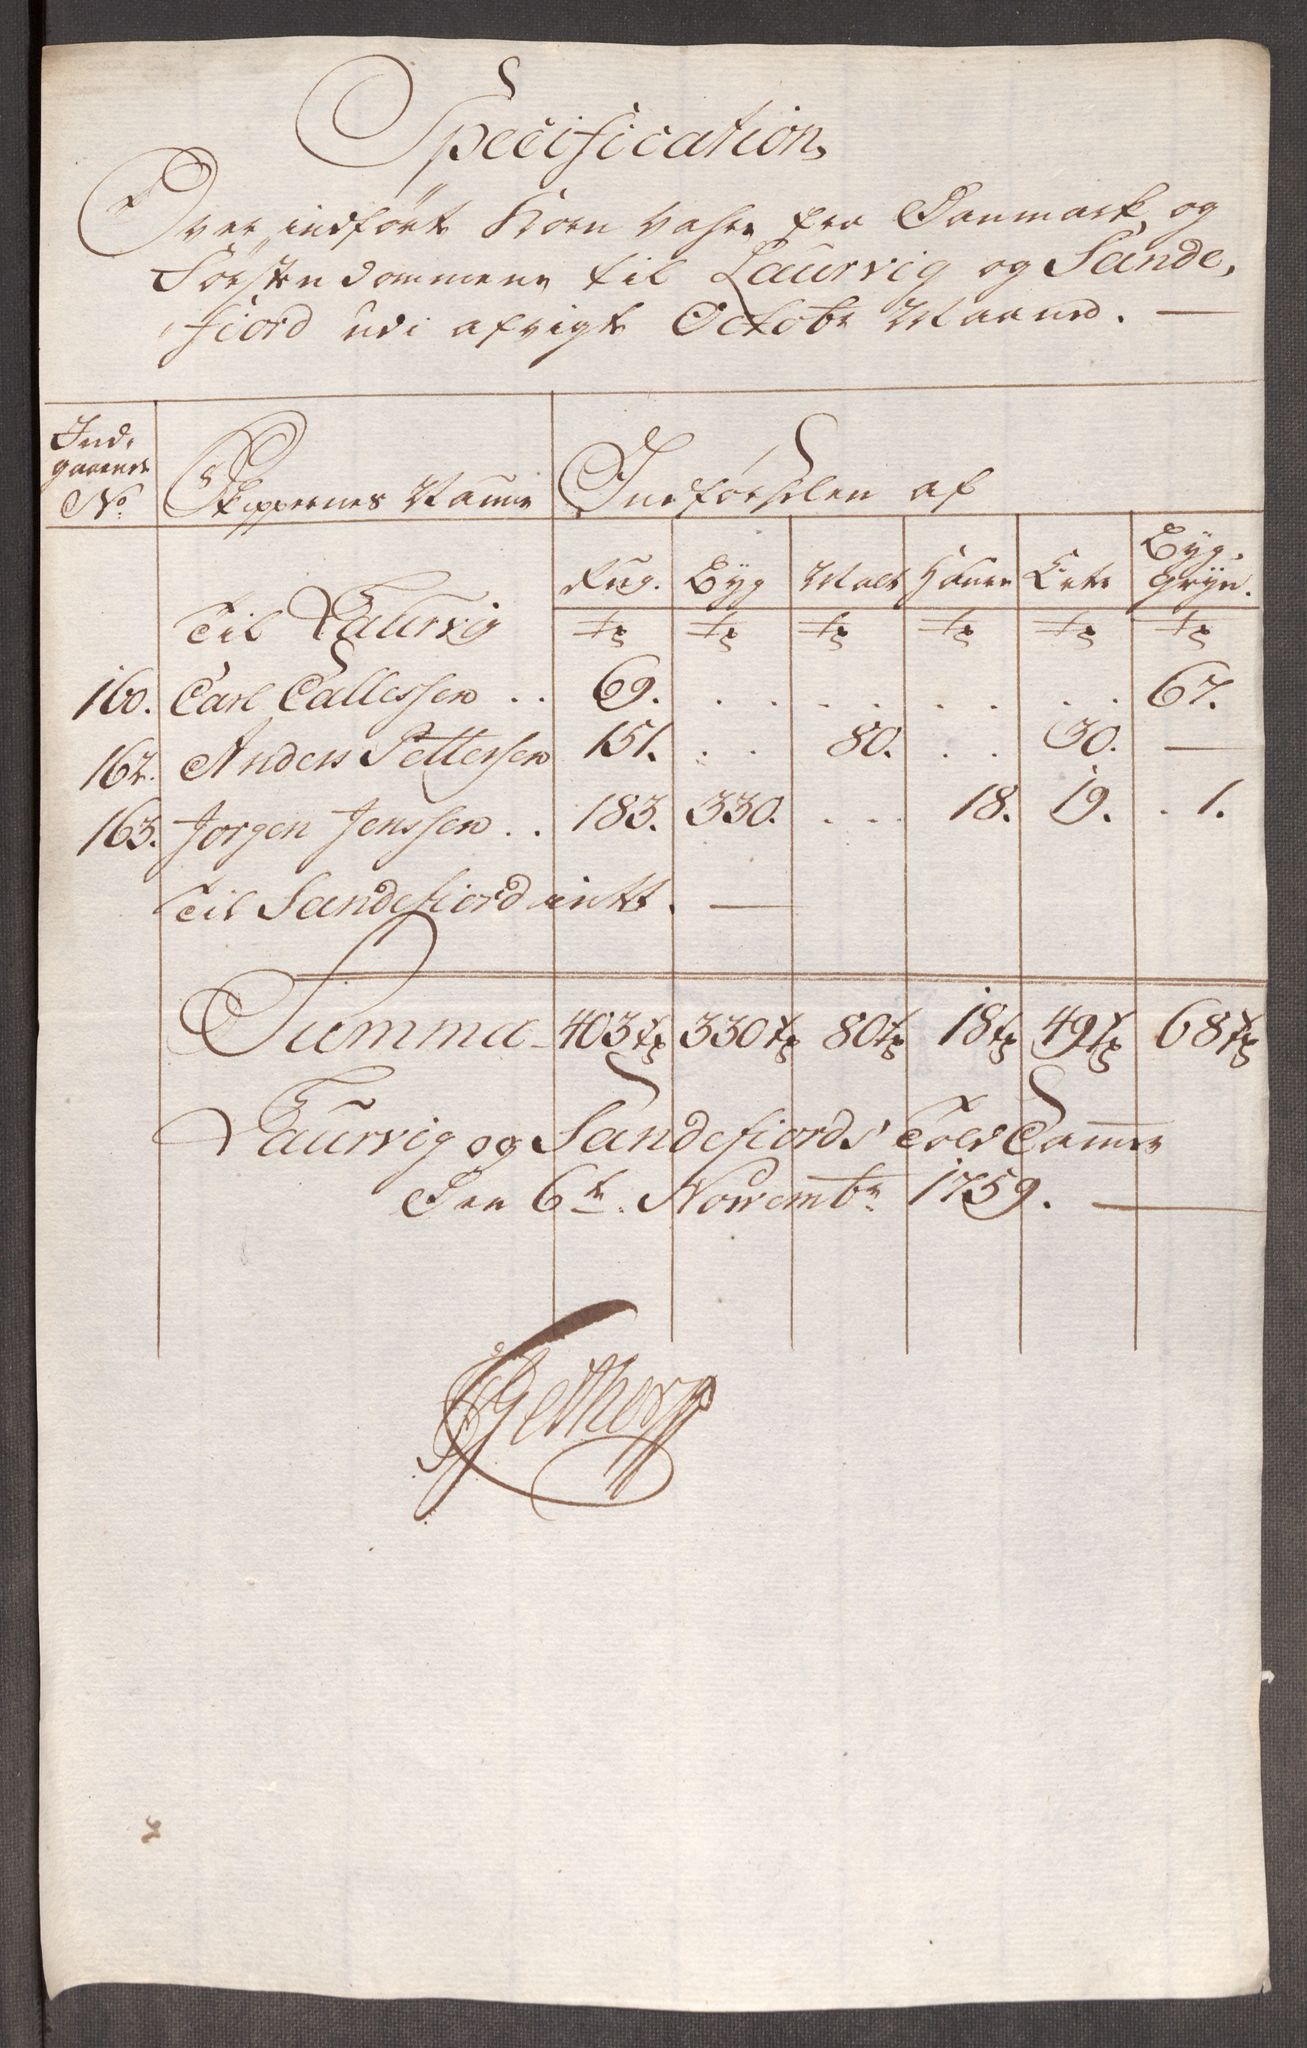 Specification
Over indført Korn Vahre fra Danmark og
Førstendommene til Laurvig og Sande,
fiord udi afvigte Octobr Maaned. —
Ind,
gaaende
No. Skippernes Nafne Indførselen af
Rug. Byg Malt Haure Erter Byg,
gryn.
Til Laurvig tr tr tr tr tr tr
160. Carl Callessen . . 69. . . . . . . . . 67.
162. Anders Pettersen 151. . . 80. . . 30. —
163. Jørgen Jenssen . . 183. 330. . . . 18. 19. . 1.
Til Sandefiord intet. —
Summa 403 tr 330 tr 80 tr 18 tr 49 tr 68 tr
Laurvig og Sandefiords Told Camer
Den 6te. Novembr 1759. —